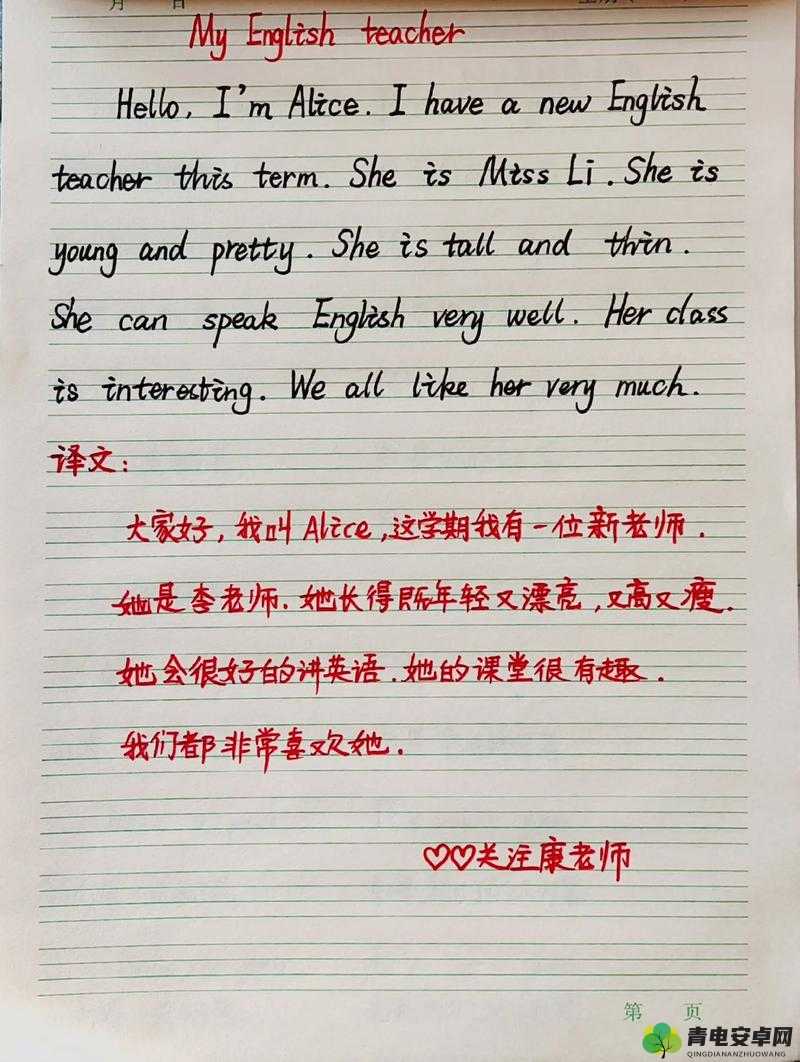 月 日
My English teacher
Hello, I'm Alice. I have a new English
teacher this term. She is Miss Li. She is
young and pretty. She is tall and thin.
She can speak English very well. Her class
is interesting. We all like her very much.
译文:
大家好,我叫Alice,这学期我有一位新老师.
她是李老师.她长得既年轻又漂亮,又高又瘦.
她会很好的讲英语.她的课堂很有趣.
我们都非常喜欢她.
♡♡关注康老师
第 页
青电安卓网
QINGDIANANZHUOWANG